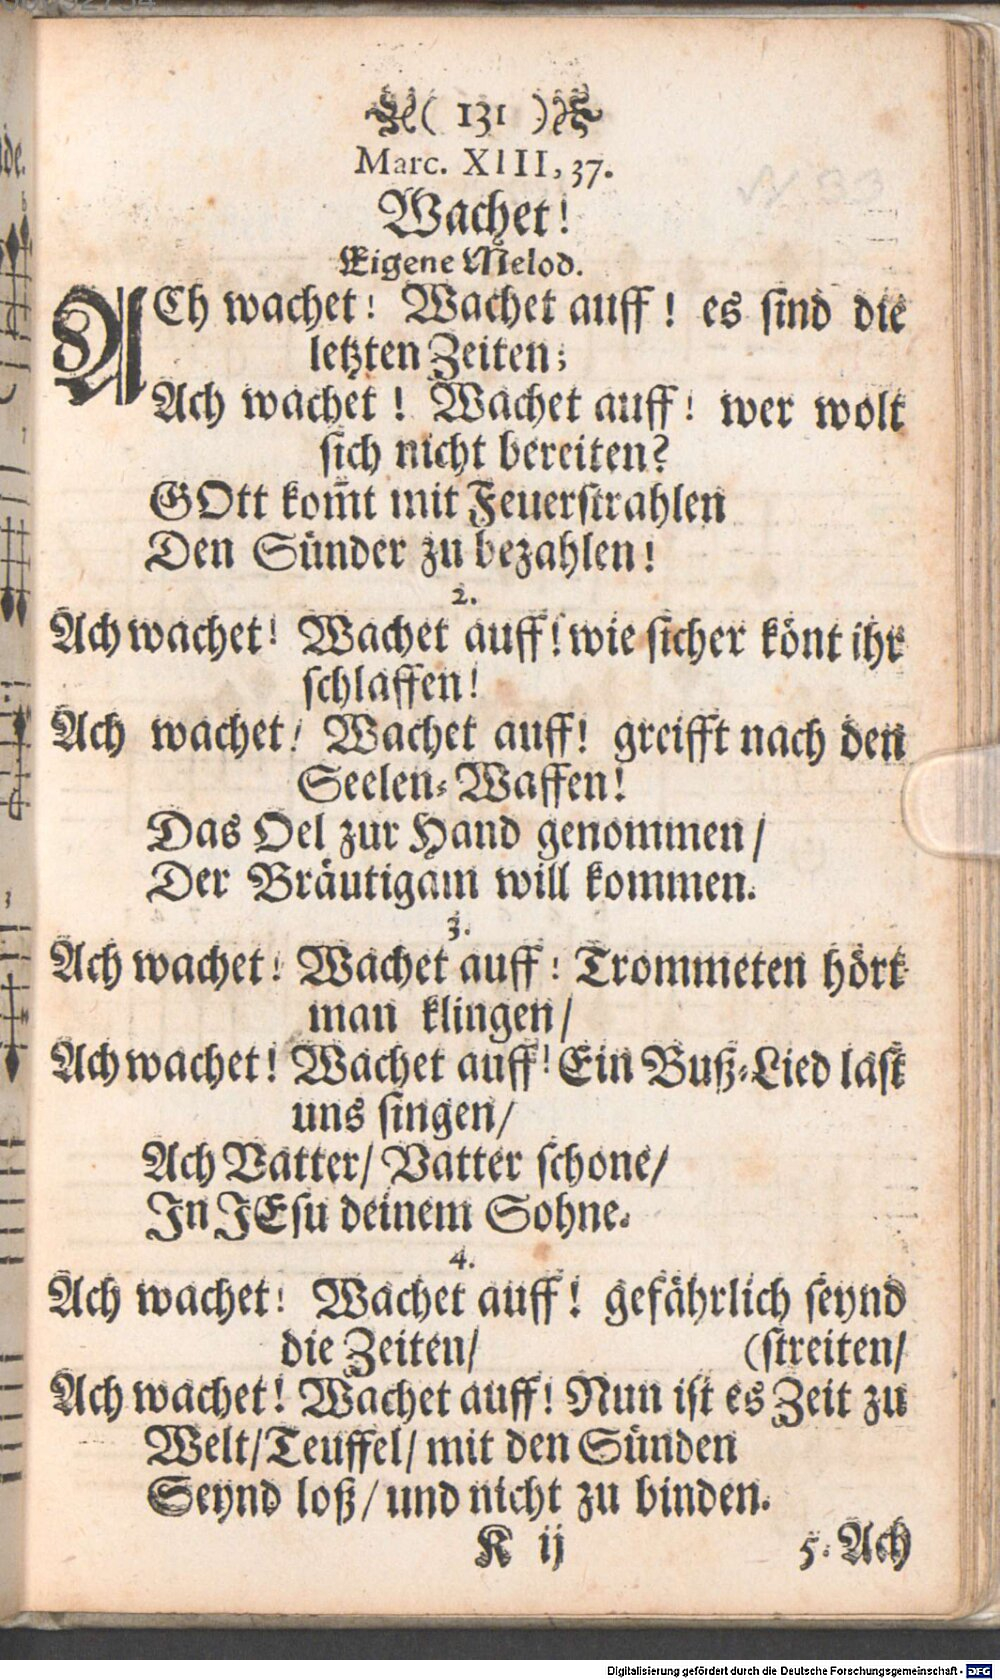 ( 131 )
Marc. XIII, 37.
Wachet!
Eigene Melod.
ACh wachet! Wachet auff! es sind die
letzten Zeiten;
Ach wachet! Wachet auff! wer wolt
sich nicht bereiten?
GOtt kom̃t mit Feuerstrahlen
Den Sünder zu bezahlen!
2.
Ach wachet! Wachet auff! wie sicher könt ihr
schlaffen!
Ach wachet! Wachet auff! greifft nach den
Seelen-Waffen!
Das Oel zur Hand genommen/
Der Bräutigam will kommen.
3.
Ach wachet! Wachet auff! Trommeten hört
man klingen/
Ach wachet! Wachet auff! Ein Buß-Lied last
uns singen/
Ach Vatter/ Vatter schone/
In JEsu deinem Sohne.
4.
Ach wachet! Wachet auff! gefährlich seynd
die Zeiten/ (streiten/
Ach wachet! Wachet auff! Nun ist es Zeit zu
Welt/ Teuffel/ mit den Sünden
Seynd loß/ und nicht zu binden.
K ij 5. Ach
Digitalisierung gefördert durch die Deutsche Forschungsgemeinschaft - DFG